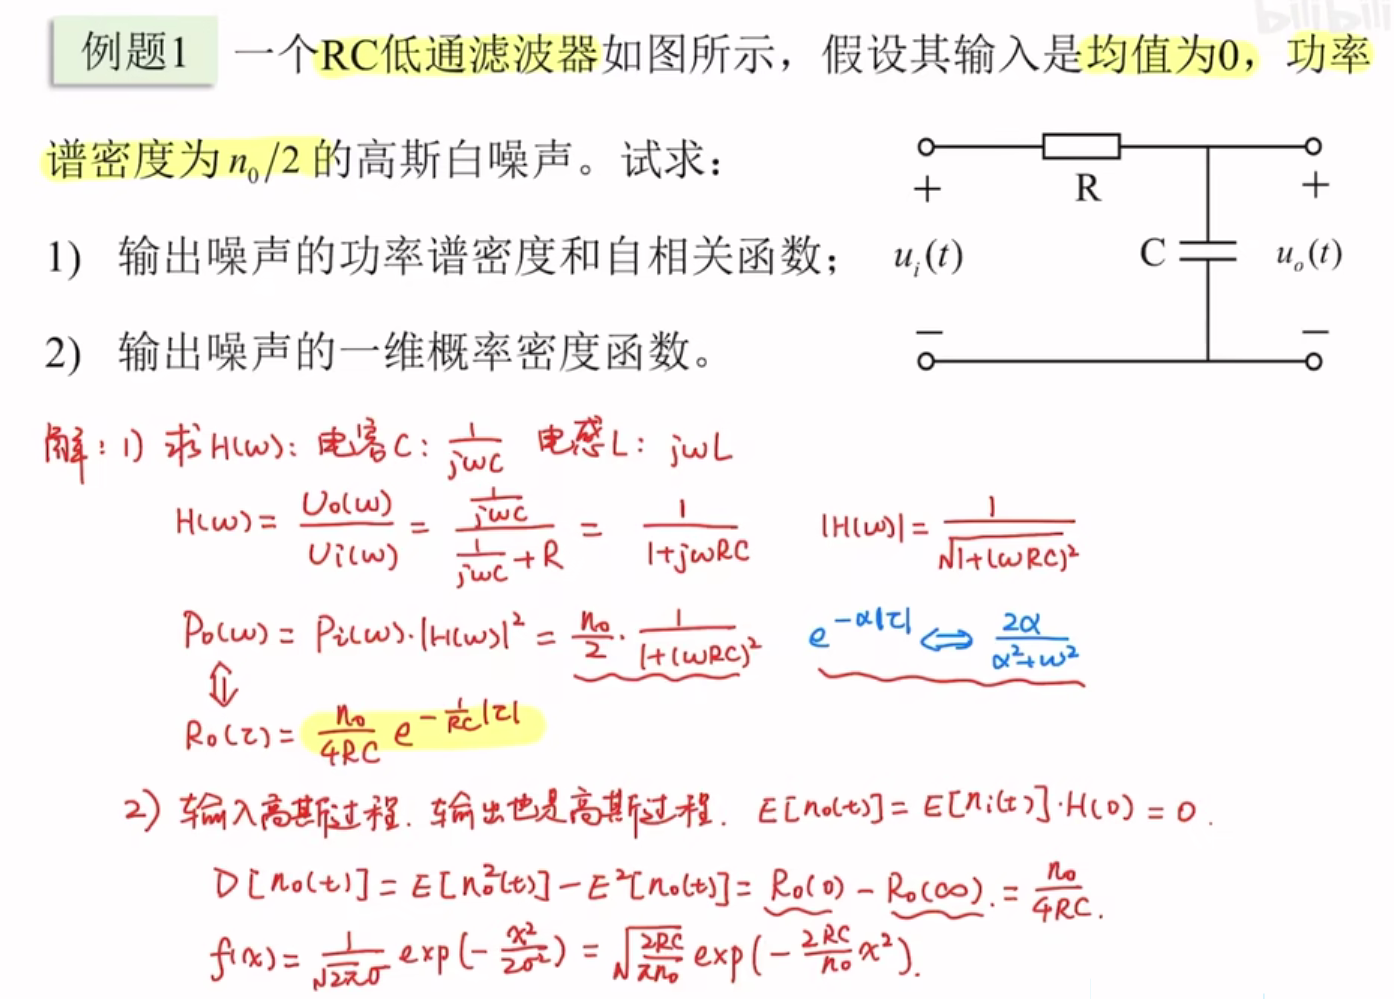 bilibili
例题1 一个RC低通滤波器如图所示，假设其输入是均值为0，功率
谱密度为 n₀/2 的高斯白噪声。试求：
1) 输出噪声的功率谱密度和自相关函数；
2) 输出噪声的一维概率密度函数。
+ R +
uᵢ(t) C uₒ(t)
− −
解：1) 求H(ω): 电容C: 1/(jωC) 电感L: jωL
H(ω) = Uo(ω)/Ui(ω) = (1/(jωC))/(1/(jωC)+R) = 1/(1+jωRC) |H(ω)| = 1/√(1+(ωRC)²)
Po(ω) = Pi(ω)·|H(ω)|² = n₀/2 · 1/(1+(ωRC)²) e^(-α|τ|) ⇔ 2α/(α²+ω²)
⇕
Ro(τ) = n₀/(4RC) e^(-(1/RC)|τ|)
2) 输入高斯过程. 输出也是高斯过程. E[no(t)] = E[ni(t)]·H(0) = 0.
D[no(t)] = E[no²(t)] − E²[no(t)] = Ro(0) − Ro(∞). = n₀/(4RC).
f(x) = 1/(√(2π)σ) exp(−x²/(2σ²)) = √(2RC/(πn₀)) exp(−(2RC/n₀)x²).